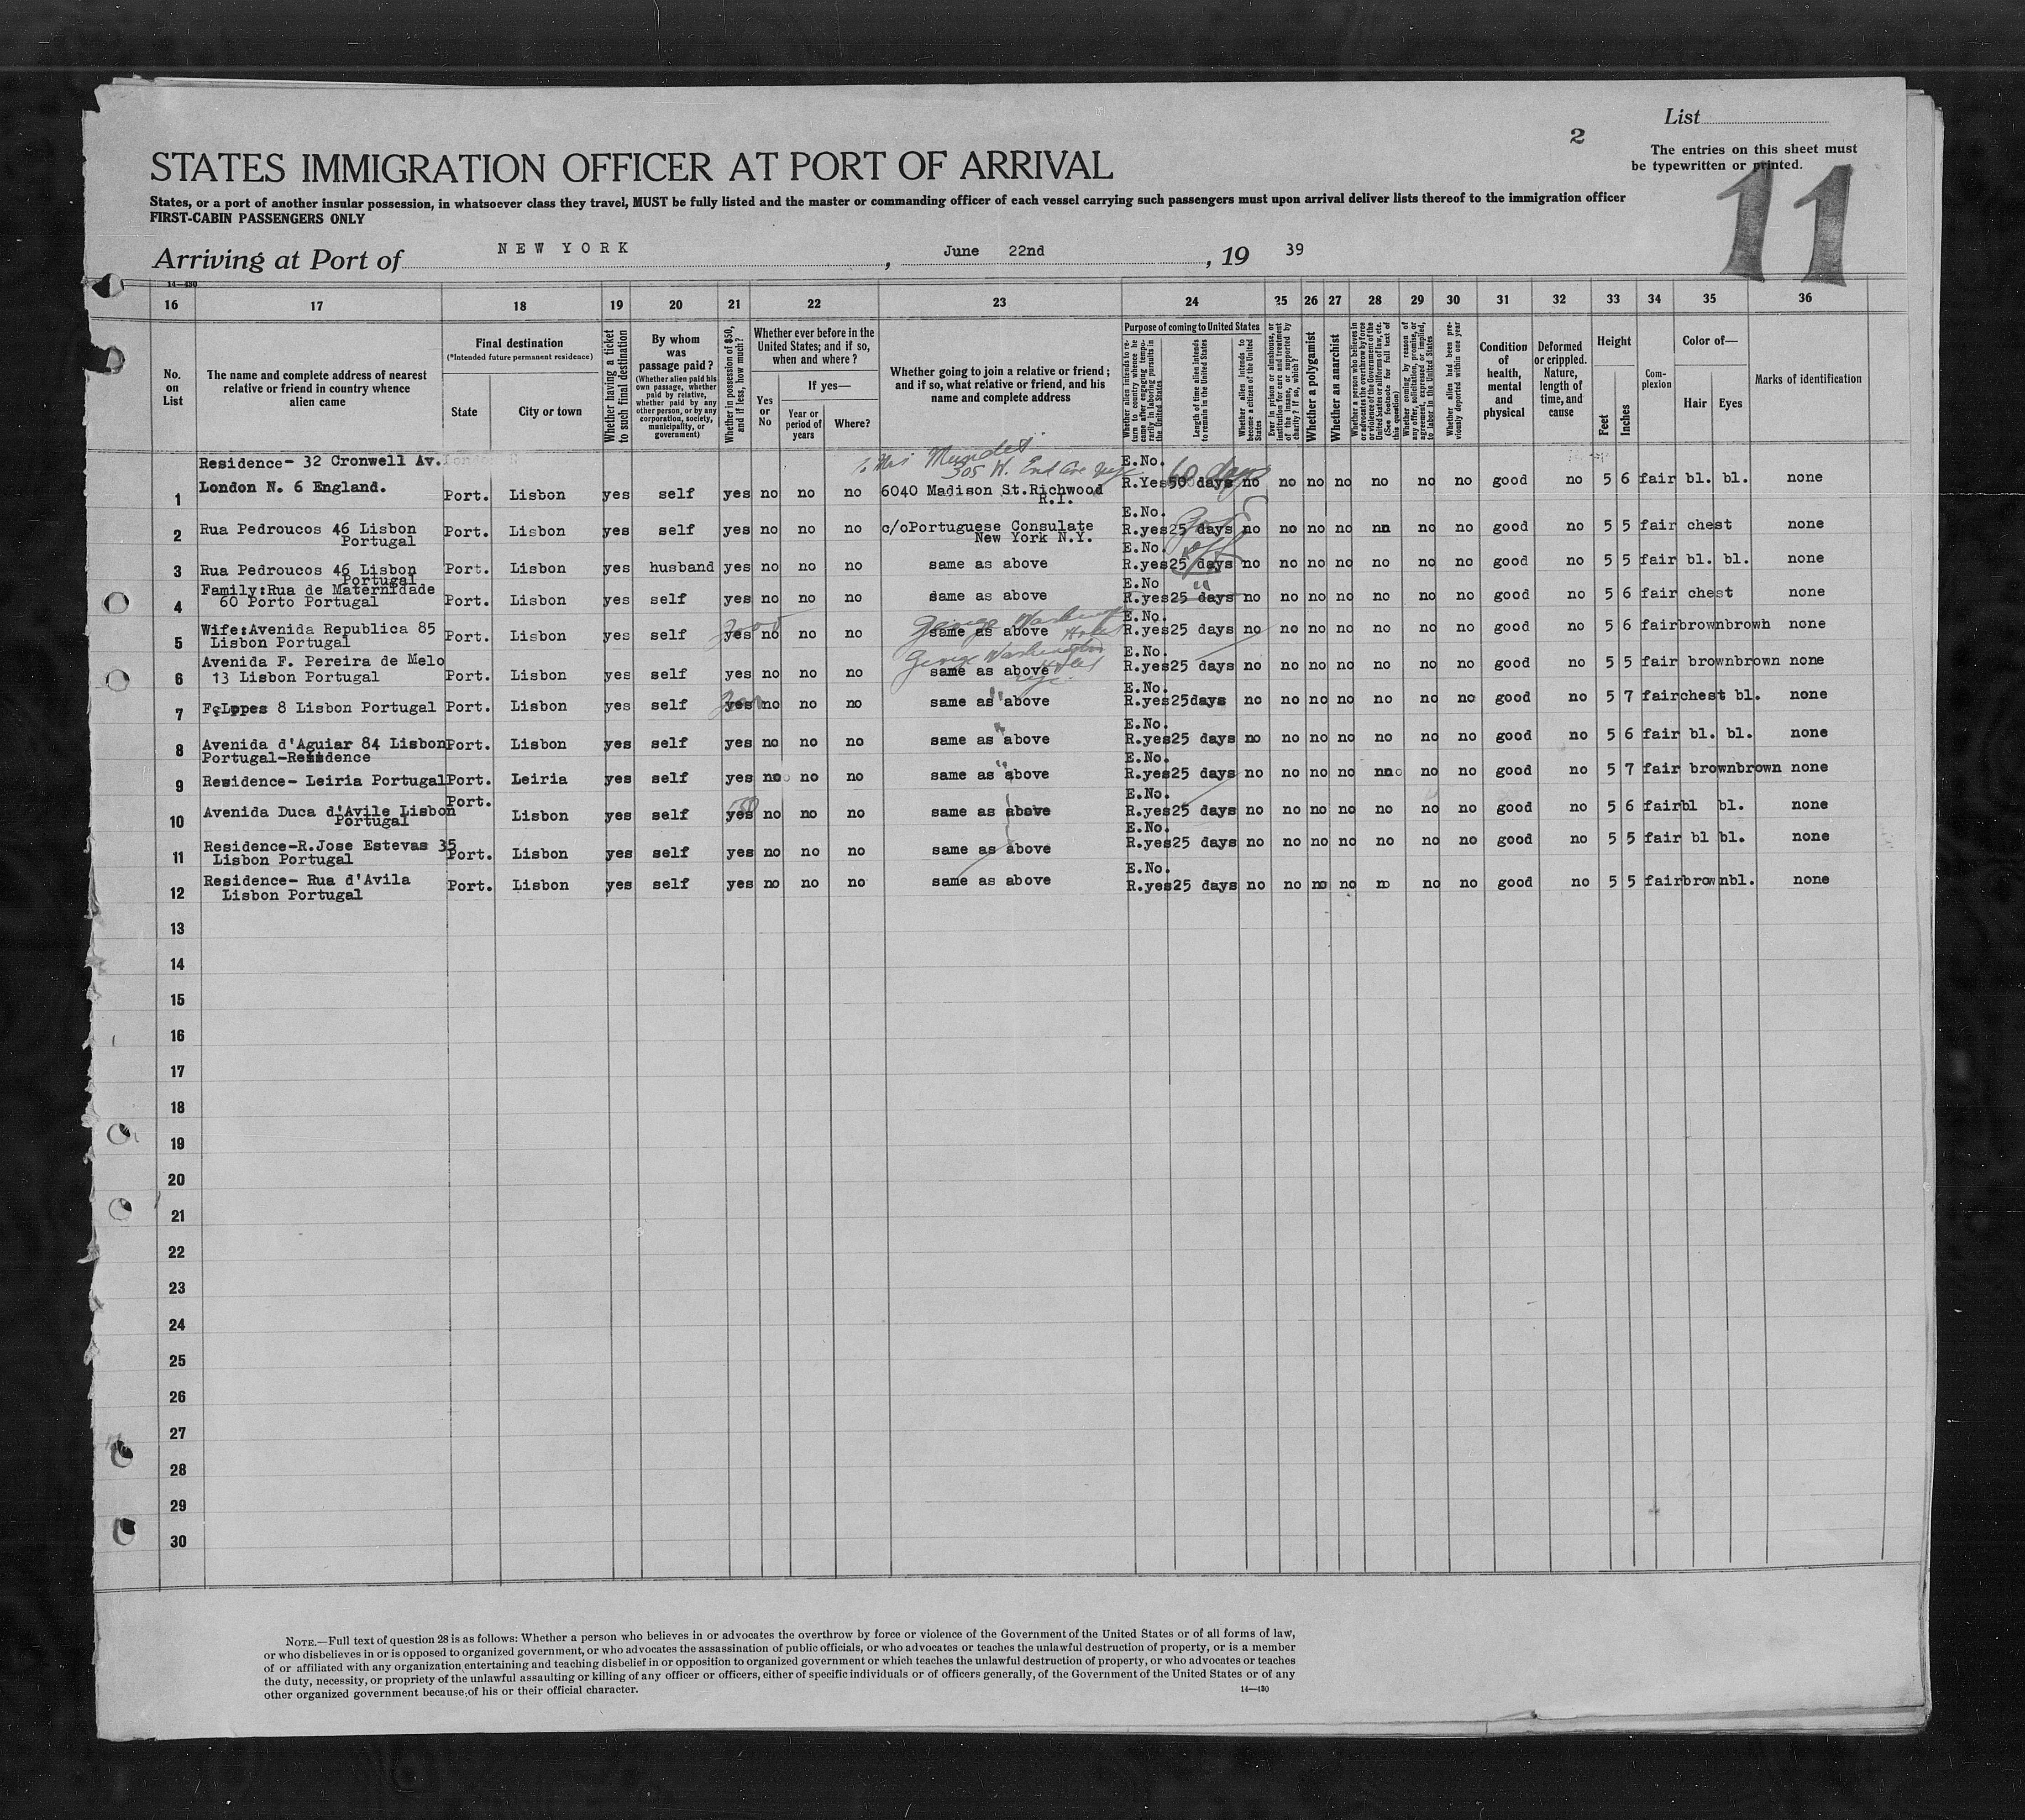 List
2
The entries on this sheet must
be typewritten or printed.
11
STATES IMMIGRATION OFFICER AT PORT OF ARRIVAL
States, or a port of another insular possession, in whatsoever class they travel, MUST be fully listed and the master or commanding officer of each vessel carrying such passengers must upon arrival deliver lists thereof to the immigration officer
FIRST-CABIN PASSENGERS ONLY
Arriving at Port of NEW YORK, June 22nd, 19 39
14—430
16 17 18 19 20 21 22 23 24 25 26 27 28 29 30 31 32 33 34 35 36
No. on List
The name and complete address of nearest relative or friend in country whence alien came
Final destination
(*Intended future permanent residence)
State
City or town
Whether having a ticket to such final destination
By whom was passage paid?
(Whether alien paid his own passage, whether paid by relative, whether paid by any other person, or by any corporation, society, municipality, or government)
Whether in possession of $50, and if less, how much?
Whether ever before in the United States; and if so, when and where?
Yes or No
If yes—
Year or period of years
Where?
Whether going to join a relative or friend; and if so, what relative or friend, and his name and complete address
Purpose of coming to United States
Whether alien intends to return to country whence he came after engaging temporarily in laboring pursuits in the United States
Length of time alien intends to remain in the United States
Whether alien intends to become a citizen of the United States
Ever in prison or almshouse, or institution for care and treatment of the insane, or supported by charity? If so, which?
Whether a polygamist
Whether an anarchist
Whether a person who believes in or advocates the overthrow by force or violence of the Government of the United States or all forms of law, etc. (See footnote for full text of this question)
Whether coming by reason of any offer, solicitation, promise, or agreement, expressed or implied, to labor in the United States
Whether alien had been previously deported within one year
Condition of health, mental and physical
Deformed or crippled. Nature, length of time, and cause
Height
Feet
Inches
Complexion
Color of—
Hair
Eyes
Marks of identification
Mrs Mundet
305 W. End Ave
60 days
Residence- 32 Cronwell Av. E.No.
1 London N. 6 England. Port. Lisbon yes self yes no no no 6040 Madison St.Richwood R.I. R.Yes 50 days no no no no no no no good no 5 6 fair bl. bl. none
E.No.
2 Rua Pedroucos 46 Lisbon Portugal Port. Lisbon yes self yes no no no c/oPortuguese Consulate New York N.Y. R.yes 25 days no no no no nn no no good no 5 5 fair chest none
E.No.
3 Rua Pedroucos 46 Lisbon Portugal Port. Lisbon yes husband yes no no no same as above R.yes 25 days no no no no no no no good no 5 5 fair bl. bl. none
E.No
4 Family:Rua de Maternidade 60 Porto Portugal Port. Lisbon yes self yes no no no same as above R.yes 25 days no no no no no no no good no 5 6 fair chest none
George Washington Hotel
E.No.
5 Wife:Avenida Republica 85 Lisbon Portugal Port. Lisbon yes self yes no no no same as above R.yes 25 days no no no no no no no good no 5 6 fair brown brown none
George Washington Hotel
E.No.
6 Avenida F. Pereira de Melo 13 Lisbon Portugal Port. Lisbon yes self yes no no no same as above R.yes 25 days no no no no no no no good no 5 5 fair brown brown none
E.No.
7 Lopes 8 Lisbon Portugal Port. Lisbon yes self yes no no no same as " above R.yes 25days no no no no no no no good no 5 7 fair chest bl. none
E.No.
8 Avenida d'Aguiar 84 Lisbon Portugal-Residence Port. Lisbon yes self yes no no no same as " above R.yes 25 days no no no no no no no good no 5 6 fair bl. bl. none
E.No.
9 Residence- Leiria Portugal Port. Leiria yes self yes no no no same as " above R.yes 25 days no no no no nno no no good no 5 7 fair brown brown none
E.No.
10 Avenida Duca d'Avile Lisbon Portugal Port. Lisbon yes self yes no no no same as above R.yes 25 days no no no no no no no good no 5 6 fair bl bl. none
E.No.
11 Residence-R.Jose Estevas 35 Lisbon Portugal Port. Lisbon yes self yes no no no same as above R.yes 25 days no no no no no no no good no 5 5 fair bl bl. none
E.No.
12 Residence- Rua d'Avila Lisbon Portugal Port. Lisbon yes self yes no no no same as above R.yes 25 days no no no no no no no good no 5 5 fair brown bl. none
13
14
15
16
17
18
19
20
21
22
23
24
25
26
27
28
29
30
NOTE.—Full text of question 28 is as follows: Whether a person who believes in or advocates the overthrow by force or violence of the Government of the United States or of all forms of law,
or who disbelieves in or is opposed to organized government, or who advocates the assassination of public officials, or who advocates or teaches the unlawful destruction of property, or is a member
of or affiliated with any organization entertaining and teaching disbelief in or opposition to organized government or which teaches the unlawful destruction of property, or who advocates or teaches
the duty, necessity, or propriety of the unlawful assaulting or killing of any officer or officers, either of specific individuals or of officers generally, of the Government of the United States or of any
other organized government because of his or their official character.
14—430